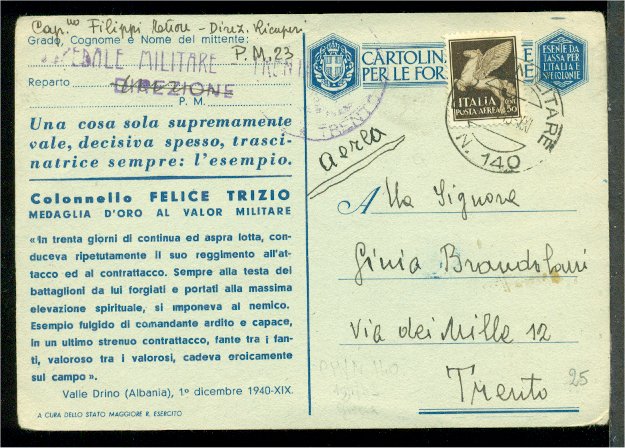 Cap.no Filippi - Direz. Ricuperi
Grado, Cognome e Nome del mittente:
P.M. 23
OSPEDALE MILITARE TRENTO
Reparto
DIREZIONE
P. M.
Una cosa sola supremamente
vale, decisiva spesso, trasci-
natrice sempre: l'esempio.
Colonnello FELICE TRIZIO
MEDAGLIA D'ORO AL VALOR MILITARE
«In trenta giorni di continua ed aspra lotta, con-
duceva ripetutamente il suo reggimento all'at-
tacco ed al contrattacco. Sempre alla testa dei
battaglioni da lui forgiati e portati alla massima
elevazione spirituale, si imponeva al nemico.
Esempio fulgido di comandante ardito e capace,
in un ultimo strenuo contrattacco, fante tra i fan-
ti, valoroso tra i valorosi, cadeva eroicamente
sul campo».
Valle Drino (Albania), 1° dicembre 1940-XIX.
A CURA DELLO STATO MAGGIORE R. ESERCITO
CARTOLINA
PER LE FOR
ESENTE DA
TASSA PER
L'ITALIA E
NE COLONIE
ITALIA
CENT 50
POSTA AEREA
TRENTO
MILITARE
N. 140
Aerea
Alla Signora
Ginia Brandolani
Via dei Mille 12
Trento
25